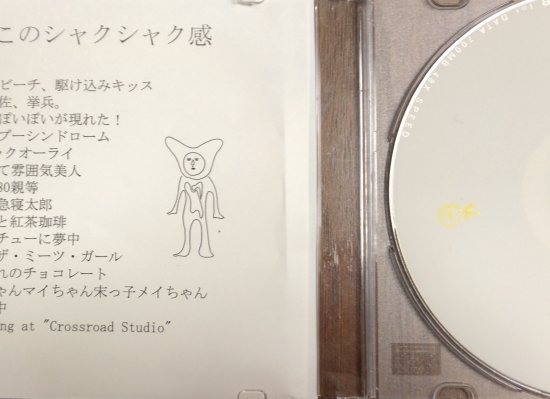 このシャクシャク感
ビーチ、駆け込みキッス
佐、挙兵。
ぽいぽいが現れた！
プーシンドローム
ックオーライ
て雰囲気美人
80親等
急寝太郎
と紅茶珈琲
チューに夢中
ザ・ミーツ・ガール
れのチョコレート
ゃんマイちゃん末っ子メイちゃん
中
ng at "Crossroad Studio"
for DATA 700MB 48X SPEED